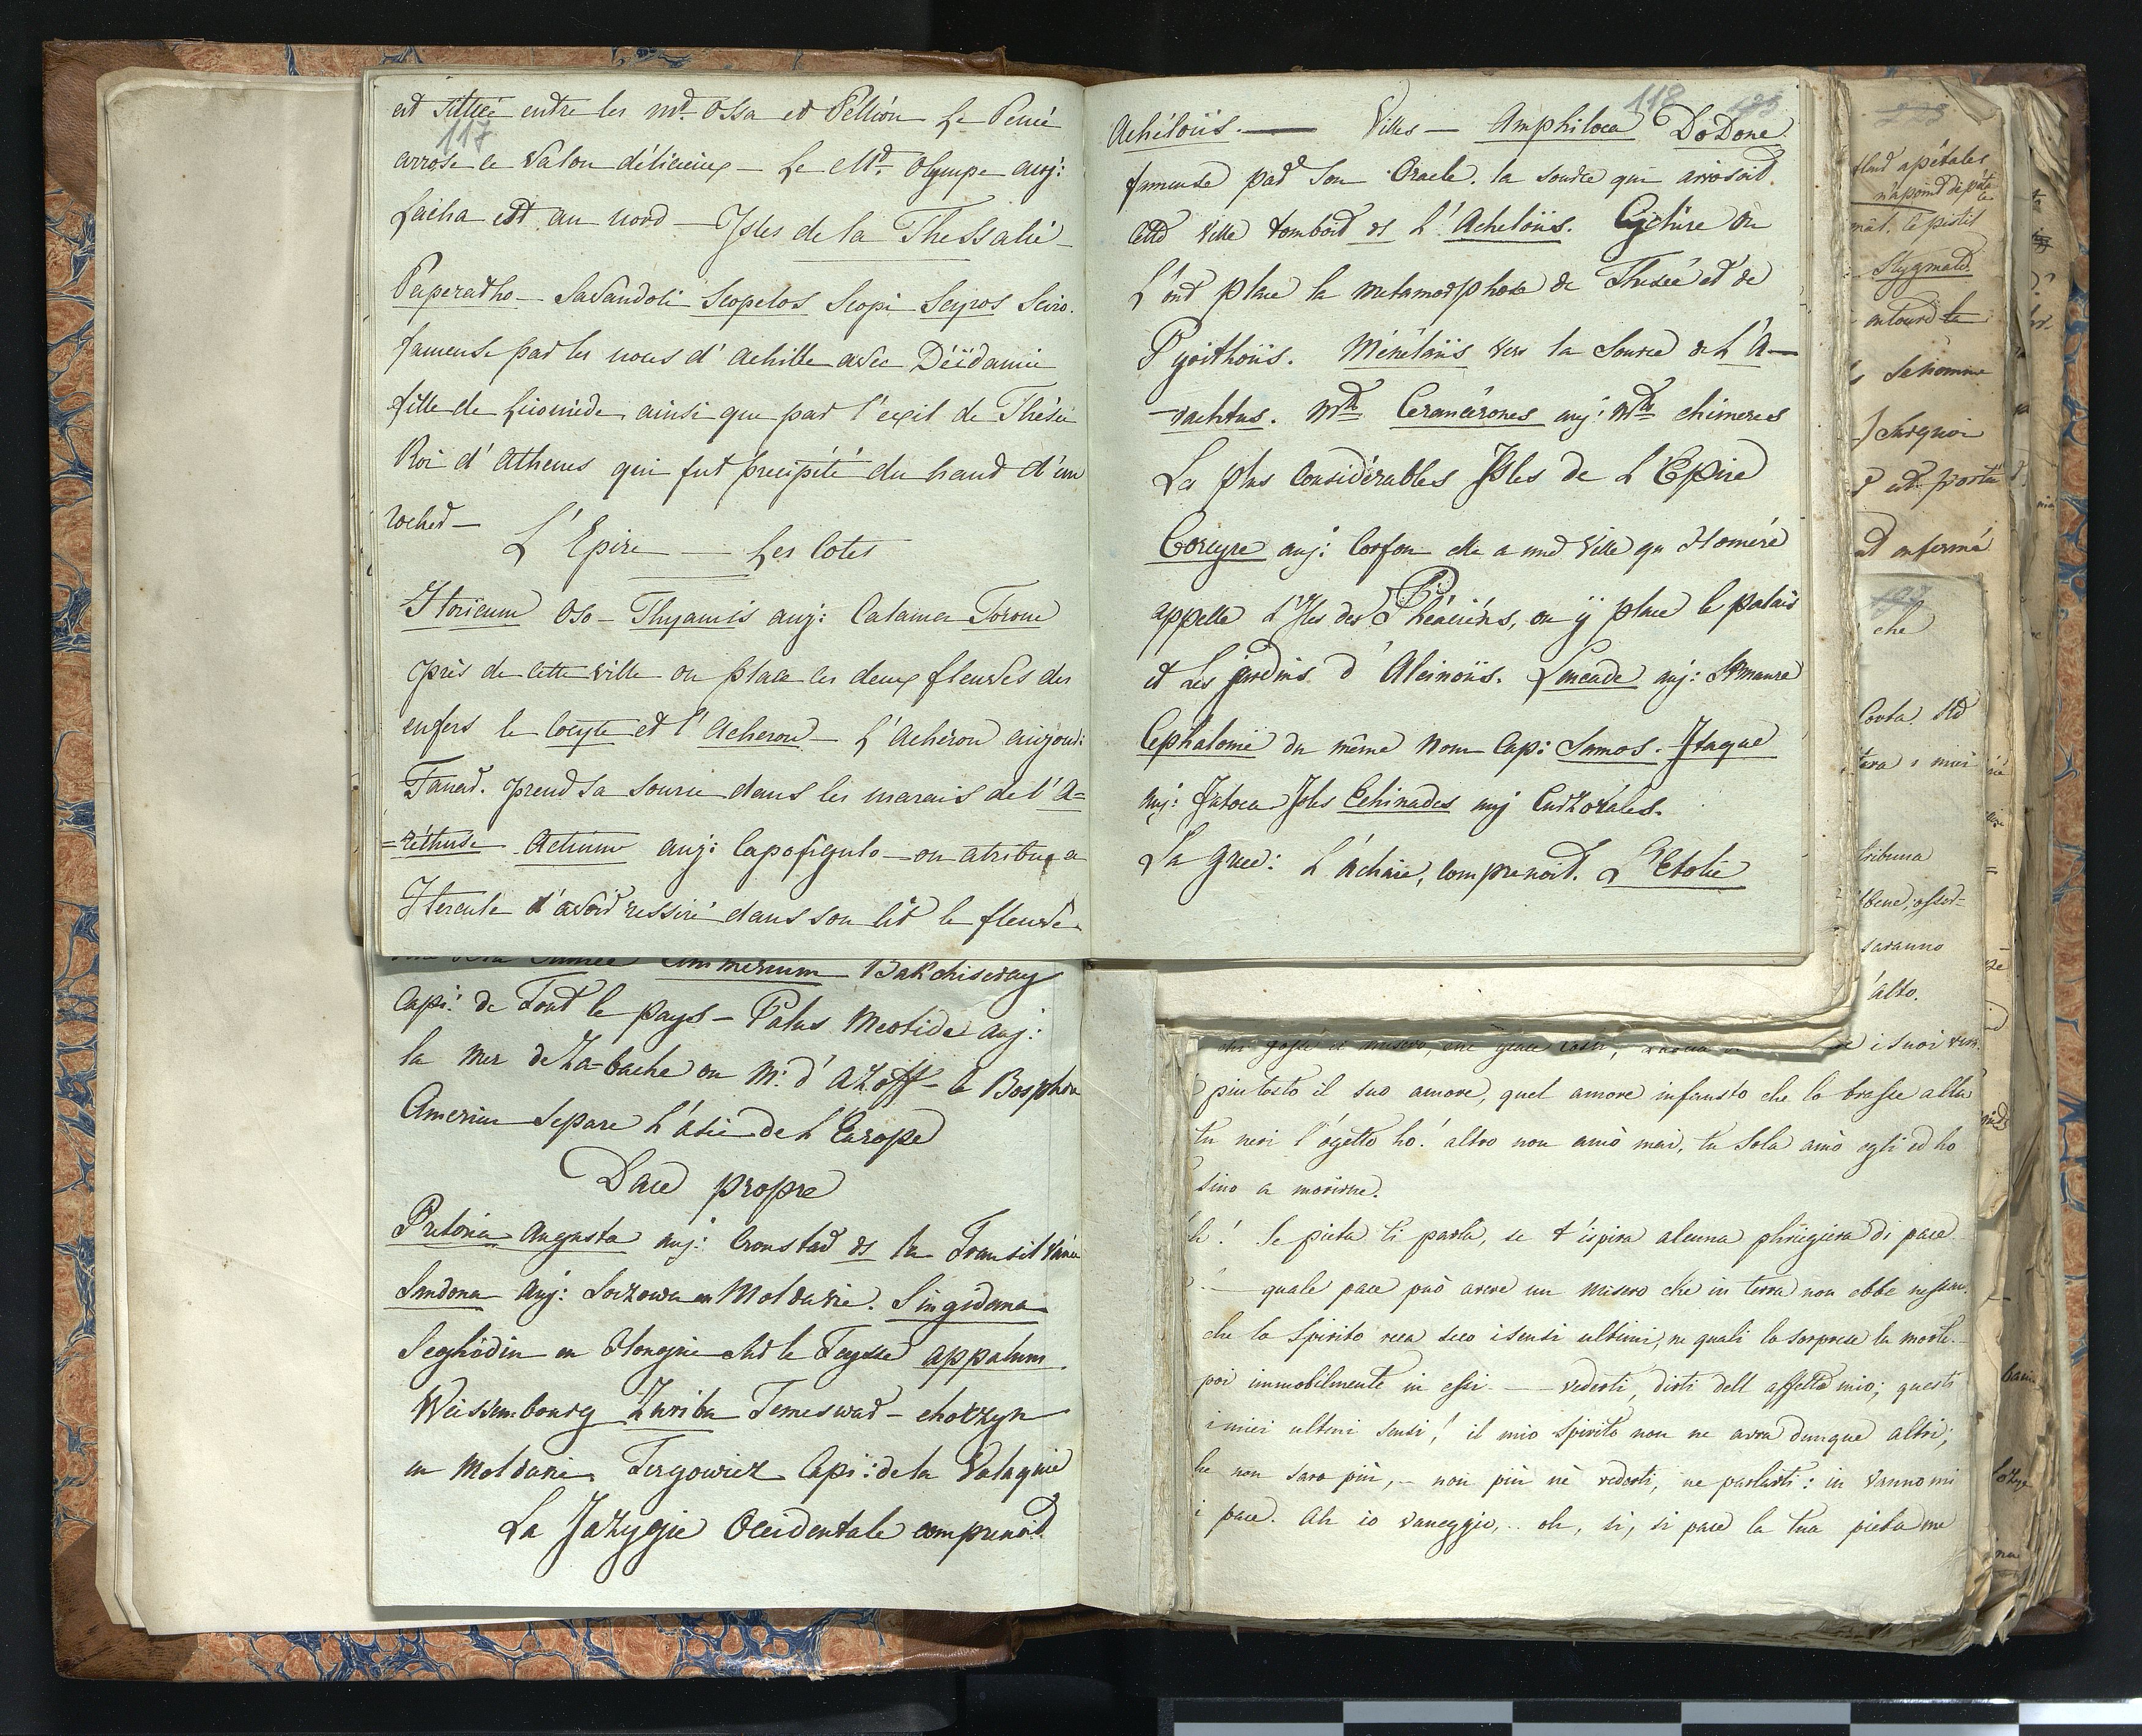 117
est située entre les mt. Ossa et Péllion Le Penée
arrose ce valon délicieux — Le Mt. Olympe auj:
Lacha est au nord — Isles de la Thessalie
Paperadho — Sasandoli Scopelos Scopi Scyros Sciro.
fameuse par les noces d'Achille avec Déïdamie
fille de Licomède ainsi que par l'exil de Thésée
Roi d'Athenes qui fut precipité du haut d'un
rocher —
L'Epire — Les Cotes
Itoricum Oso — Thyamis auj: Calamea Torone
près de cette ville on place les deux fleuves des
enfers le Cocyte et l'Acheron — L'Achéron aujourd:
Fanar. prend sa source dans les marais de l'A=
=réthuse Actium auj: Capofigulo — on atribue a
Hercule d'avoir ressiré dans son lit le fleuve
118
Achéloüs. — Villes — Amphiloca DoDone
fameuse par son Oracle. la source qui arrosoit
cette ville tomboit ds L'Acheloüs. Cychire ou
L'ont place la metamorphose de Thesée et de
Pyrithoüs. Ménélaüs vers la Source de L'A—
—rachtus. Mts Ceraunérones auj: Mts chimeres
Les plus considérables Isles de L'Epire
Corcyre auj: Corfou elle a une Ville qu Homére
appelle L'Isles des Phéaciéns, on ÿ place le palais
et Les jardins d'Alcinoüs. Leucade auj: St maure
Cephalonie du même nom Capi: Samos. Itaque
auj: Jatoca Isles Echinades auj Curzolales.
La Grece: L'Achaie, comprenoit. L'Etolie
Cimmerium Bakchiseray
Capi: de Tout le pays — Palus Meotide auj:
la mer de Za=bache ou M. d'Azoff — le Bosphore
Cimerien Separe L'Asie de L'Europe
Dace propre
Pretoria Augusta auj: Cronstad ds la Transilvanie
Sandona auj: Soczowa en Moldavie. Singidona
Seghédin en Hongrie sur le Teysse appalum.
Weissembourg Zuriba Temeswar — chotzyn
en Moldavie Tergowicz Capi: de la Valaquie
La Jazygie Occidentale comprenoit
piutosto il suo amore, quel amore infausto che lo trasse alla
tu neri l'ogetto ho! altro non amò mai, tu sola amò egli ed ho
sino a morirne.
Se pieta ti parla, se t'ispira alcuna phrigiera di pace
— quale pace può avere un misero che in terra non ebbe nessun.
che lo spirito reca seco i sensi ultimi, ne quali lo sorprese la morte.
poi immobilmente in essi. — vederti, dirti dell affetto mio; questi
i miei ultimi sensi! il mio spirito non ne avra dunque altri;
he non saro più, — non più nè vederti, ne parlarti: in vanno mi
i pace. Ah io vaneggio,.. oh, si, si pace la tua pieta me
apétales
pistil
Stygmate
entourd le
se nomme
est enfermé
che
tribuna
saranno
alto.
e i suoi